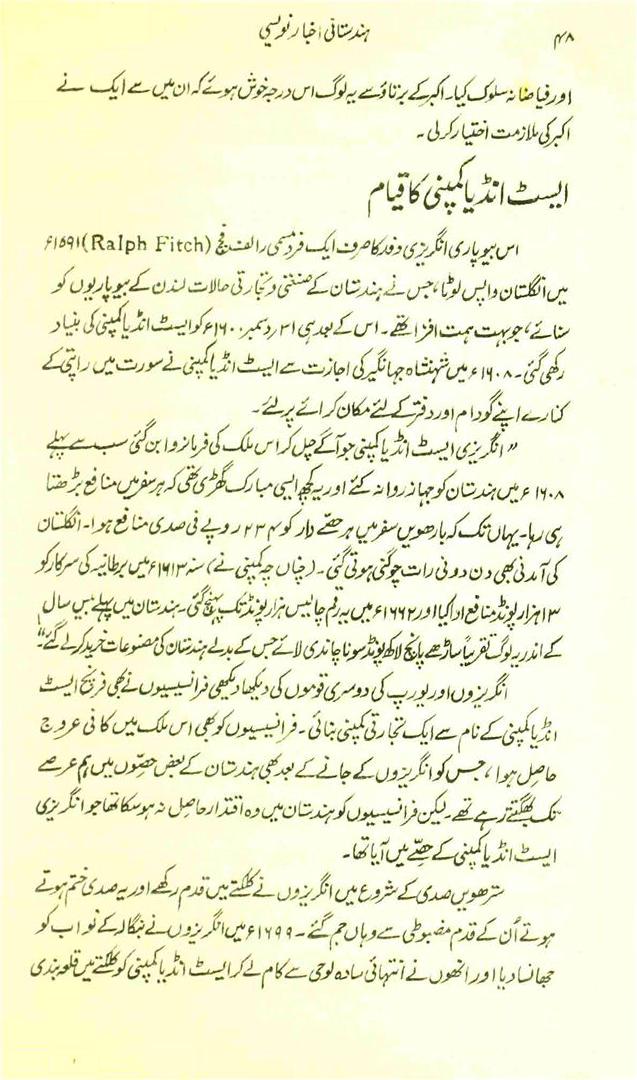 ۴۸ ہندستانی اخبار نویسی
اور فیاضانہ سلوک کیا۔ اکبر کے برتاؤ سے یہ لوگ اس درجہ خوش ہوئے کہ ان میں سے ایک نے
اکبر کی ملازمت اختیار کر لی۔
ایسٹ انڈیا کمپنی کا قیام
اس بیوپاری انگریزی وفد کا صرف ایک فرد مسمی رالف فچ (Ralph Fitch) ۱۵۹۱ء
میں انگلستان واپس لوٹا، جس نے ہندستان کے صنعتی و تجارتی حالات لندن کے بیوپاریوں کو
سنائے، جو بہت ہمت افزا تھے۔ اس کے بعد ہی ۳۱ دسمبر ۱۶۰۰ء کو ایسٹ انڈیا کمپنی کی بنیاد
رکھی گئی۔ ۱۶۰۸ء میں شہنشاہ جہانگیر کی اجازت سے ایسٹ انڈیا کمپنی نے سورت میں راپتی کے
کنارے اپنے گودام اور دفتر کے لئے مکان کرائے پر لئے۔
”انگریزی ایسٹ انڈیا کمپنی جو آگے چل کر اس ملک کی فرمانروا بن گئی سب سے پہلے
۱۶۰۸ء میں ہندستان کو جہاز روانہ کئے اور یہ کچھ ایسی مبارک گھڑی تھی کہ ہر سفر میں منافع بڑھتا
ہی رہا۔ یہاں تک کہ بارھویں سفر میں ہر حصے دار کو ۲۳۴ روپے فی صدی منافع ہوا۔ انگلستان
کی آمدنی بھی دن دونی رات چوگنی ہوتی گئی۔ (چناں چہ کمپنی نے) سنہ ۱۶۱۳ء میں برطانیہ کی سرکار کو
۱۳ ہزار پونڈ منافع ادا کیا اور ۱۶۶۲ء میں یہ رقم چالیس ہزار پونڈ تک پہنچ گئی۔ ہندستان میں پہلے بیس سال
کے اندر یہ لوگ تقریباً ساڑھے پانچ لاکھ پونڈ سونا چاندی لائے جس کے بدلے ہندستان کی مصنوعات خرید کر لے گئے“
انگریزوں اور یورپ کی دوسری قوموں کی دیکھا دیکھی فرانسیسیوں نے بھی فرنچ ایسٹ
انڈیا کمپنی کے نام سے ایک تجارتی کمپنی بنائی۔ فرانسیسیوں کو بھی اس ملک میں کافی عروج
حاصل ہوا، جس کو انگریزوں کے جانے کے بعد بھی ہندستان کے بعض حصّوں میں ہم عرصے
تک بھگتتے رہے تھے۔ لیکن فرانسیسیوں کو ہندستان میں وہ اقتدار حاصل نہ ہو سکا تھا جو انگریزی
ایسٹ انڈیا کمپنی کے حصّے میں آیا تھا۔
سترھویں صدی کے شروع میں انگریزوں نے کلکتے میں قدم رکھے اور یہ صدی ختم ہوتے
ہوتے اُن کے قدم مضبوطی سے وہاں جم گئے۔ ۱۶۹۹ء میں انگریزوں نے بنگالہ کے نواب کو
جھانسا دیا اور انھوں نے انتہائی سادہ لوحی سے کام لے کر ایسٹ انڈیا کمپنی کو کلکتے میں قلعہ بندی